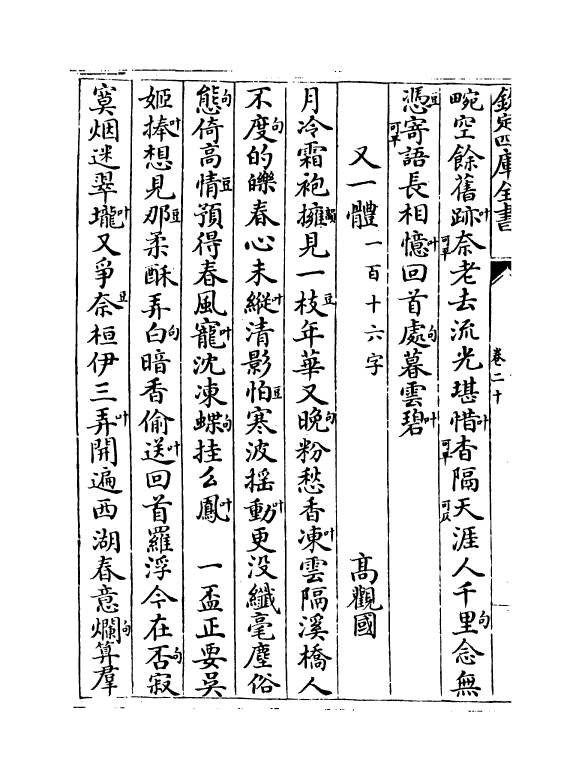 欽定四庫全書
卷二十
畹空餘舊跡叶奈老去流光堪惜叶杳隔天涯人千里句念無
憑豆寄語長相憶叶回首處句暮雲碧叶
又一體 一百十六字 高觀國
月冷霜袍擁韻見一枝豆年華又晚句粉愁香凍叶雲隔溪橋人
不度句的皪春心未縱叶清影怕豆寒波搖動叶更没纖毫塵俗
態句倚高情豆預得春風寵叶沈凍蝶句挂么鳳叶 一盃正要吳
姬捧叶想見那豆柔酥弄白句暗香偷送叶回首羅浮今在否句寂
寞烟迷翠壠叶又爭奈豆桓伊三弄叶開遍西湖春意爛句算羣